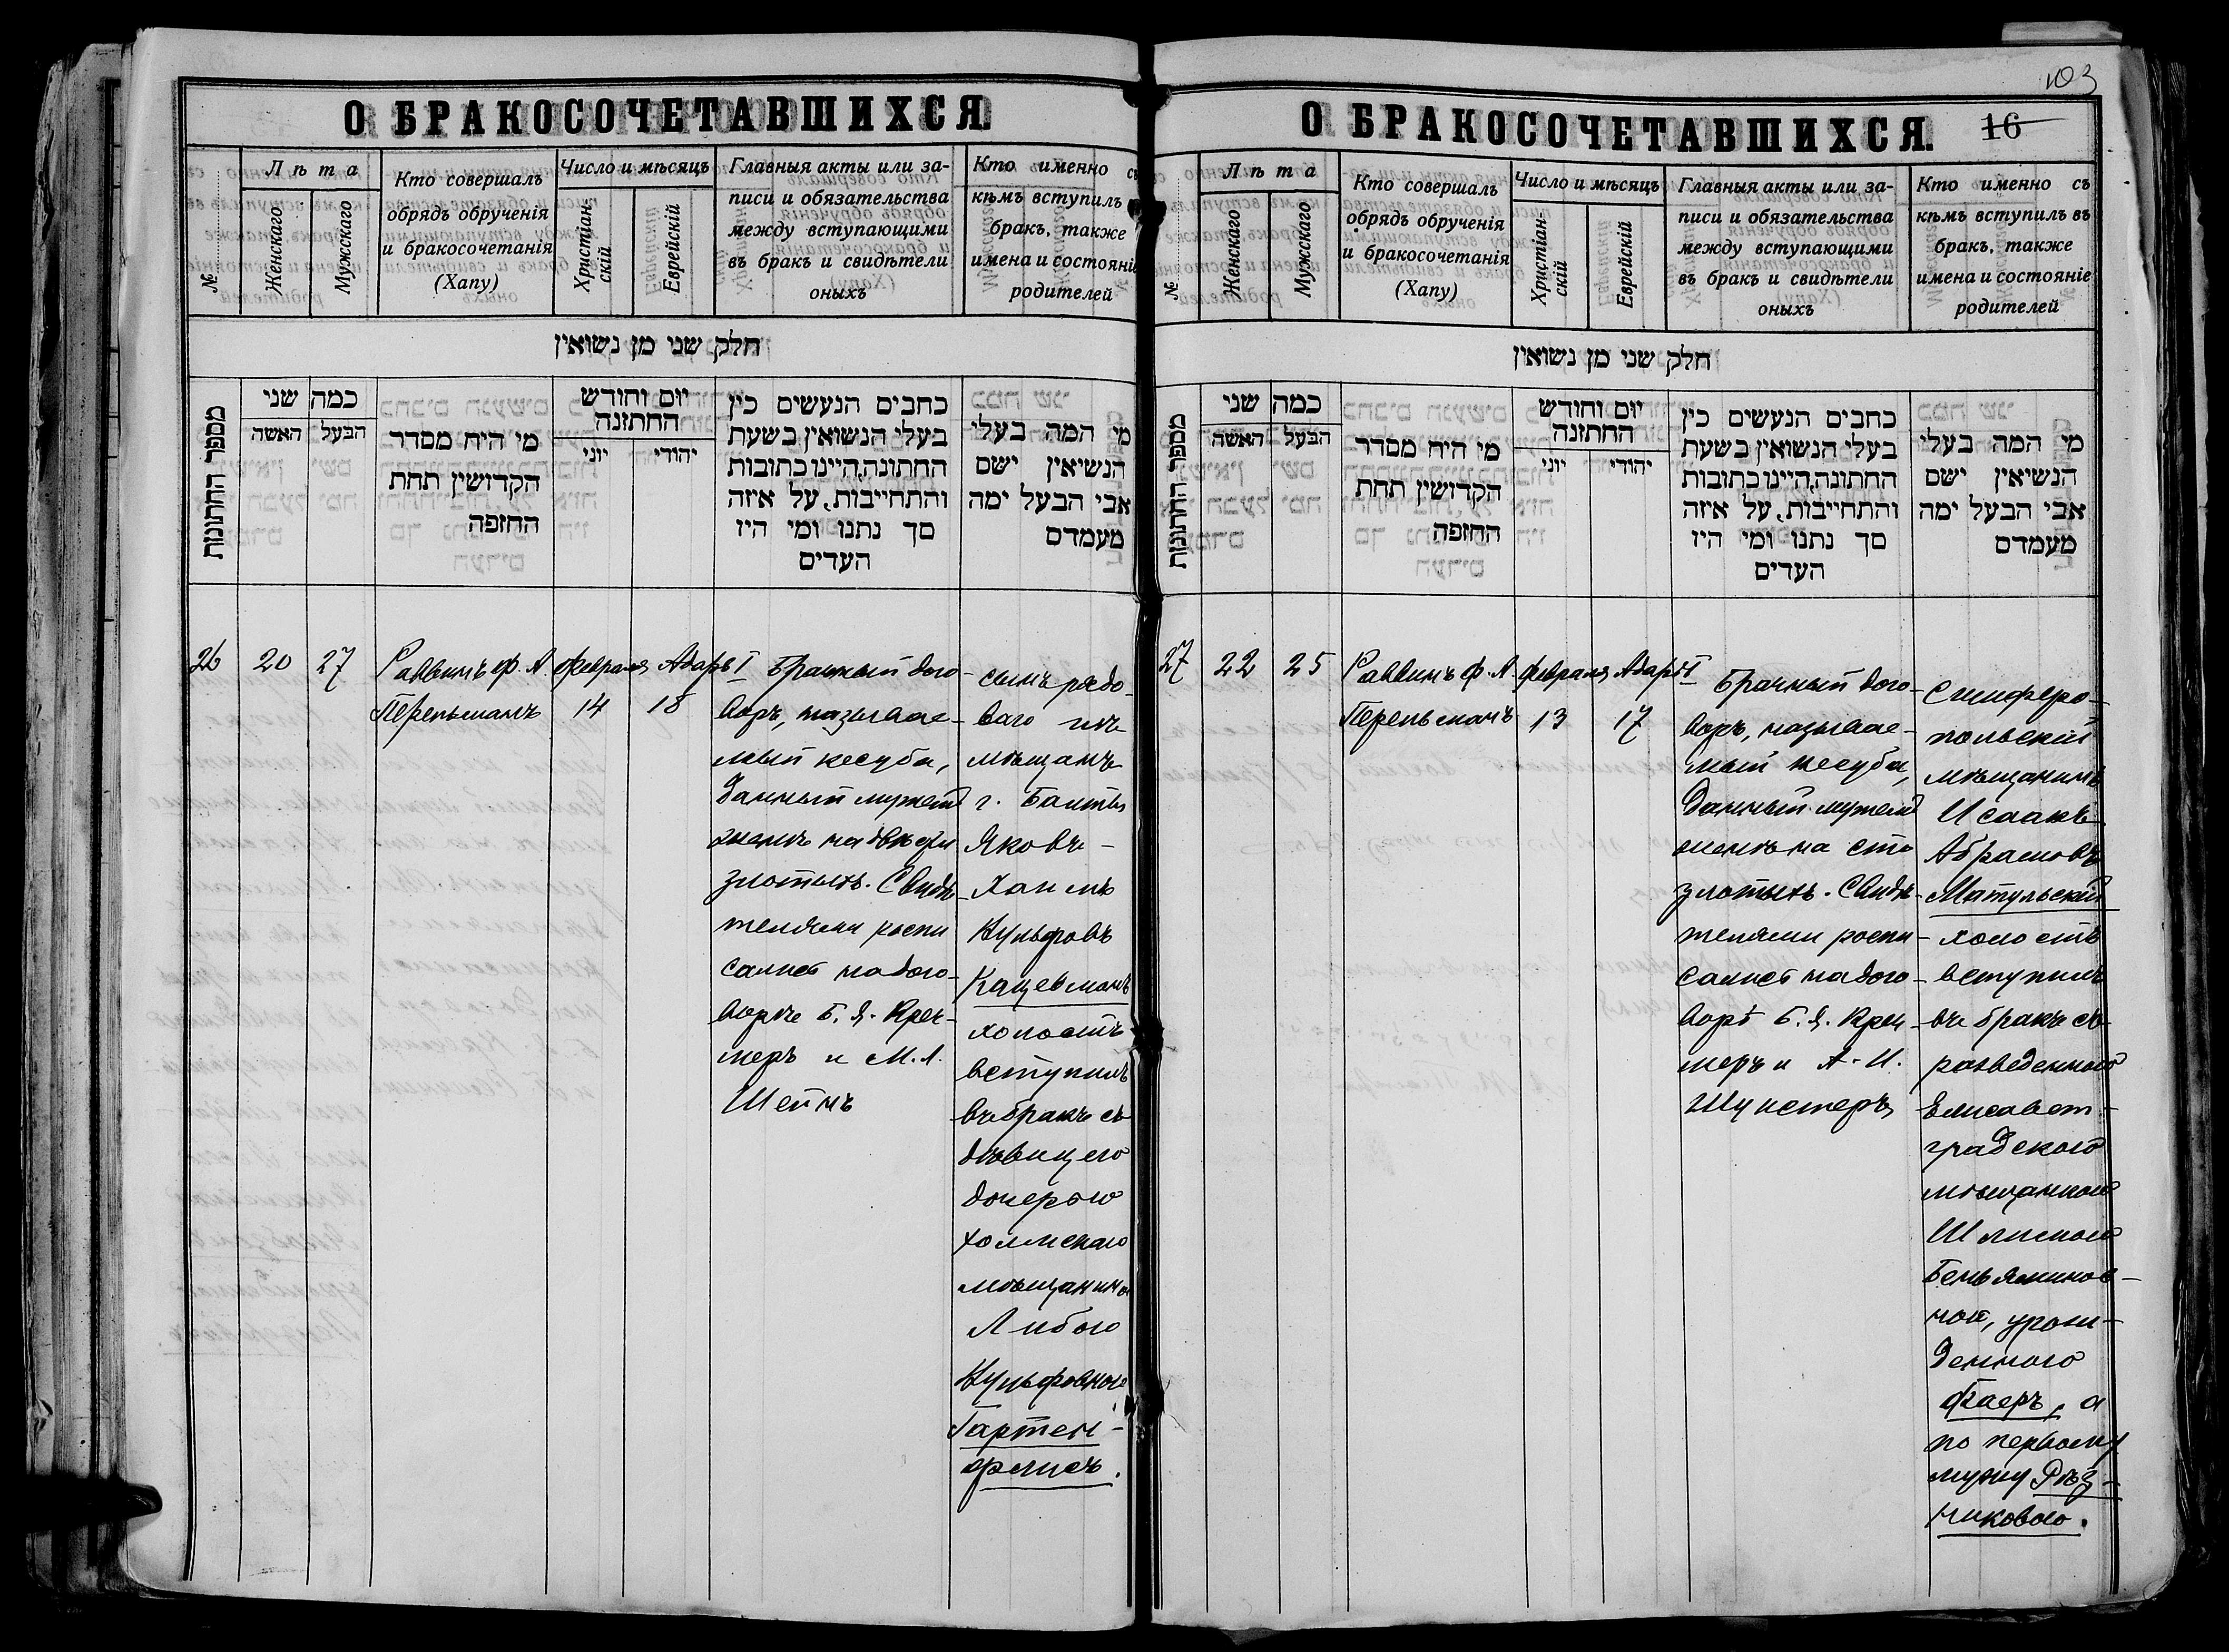 103
О БРАКОСОЧЕТАВШИХСЯ.
№
Лѣта
Женскаго.
Мужскаго.
Кто совершалъ
обрядъ обрученія
и бракосочетанія
(Хапу)
Число и мѣсяцъ
Христіан-
скій
Еврейскій
Главныя акты или за-
писи и обязательства
между вступающими
въ бракъ и свидѣтели
оныхъ
Кто именно съ
кѣмъ вступилъ въ
бракъ, также
имена и состояніе
родителей
חלק שני מן נשואין
מספר החתונות
כמה שני
האשה
הבעל
מי היה מסדר
הקדושין תחת
החופה
יום וחודש
החתונה
יוני
יהודי
כתבים הנעשים בין
בעלי הנשואין בשעת
החתונה, היינו כתובות
והתחייבות, על איזה
סך נתנו ומי היו
העדים
מי המה בעלי
הנשיאין ישם
אבי הבעל ימה
מעמדם
26
20
27
Раввинъ Ф. А.
Перельманъ
Февраля
14
Адаръ I
18
Брачный дого-
воръ, называе-
мый кесуба,
данный мужемъ
женѣ на двѣсти
злотыхъ. Свидѣ-
телями роспи
сались на дого-
ворѣ Б. Я. Крей-
меръ и М. Л.
Шейнъ
сынъ рядо-
ваго изъ
мѣщанъ
г. Балты
Яковъ-
Хаимъ
Вульфовъ
Кацевманъ
холостъ
вступилъ
въ бракъ съ
дѣвицею
дочерью
холмскаго
мѣщанина
Либою
Вульфовною
Гартен-
флисъ.
О БРАКОСОЧЕТАВШИХСЯ.
16
№
Лѣта
Женскаго.
Мужскаго.
Кто совершалъ
обрядъ обрученія
и бракосочетанія
(Хапу)
Число и мѣсяцъ
Христіан-
скій
Еврейскій
Главныя акты или за-
писи и обязательства
между вступающими
въ бракъ и свидѣтели
оныхъ
Кто именно съ
кѣмъ вступилъ въ
бракъ, также
имена и состояніе
родителей
חלק שני מן נשואין
מספר החתונות
כמה שני
האשה
הבעל
מי היה מסדר
הקדושין תחת
החופה
יום וחודש
החתונה
יוני
יהודי
כתבים הנעשים בין
בעלי הנשואין בשעת
החתונה, היינו כתובות
והתחייבות, על איזה
סך נתנו ומי היו
העדים
מי המה בעלי
הנשיאין ישם
אבי הבעל ימה
מעמדם
27
22
25
Раввинъ Ф. А.
Перельманъ
Февраля
13
Адаръ I
17
Брачный дого-
воръ, называе-
мый кесуба,
данный мужемъ
женѣ на сто
злотыхъ. Свидѣ-
телями роспи-
сались на дого-
ворѣ Б. Я. Крей-
меръ и А. И.
Шукстеръ
Симферо-
польскій
мѣщанинъ
Исаакъ
Абрамовъ
Матульскій
холостъ
вступилъ
въ бракъ съ
разведенною
Елисавет-
градскою
мѣщанкою
Шлимою
Беньяминов-
ной, урож-
денною
Фаеръ, а
по первому
мужу Рѣз-
никовою.